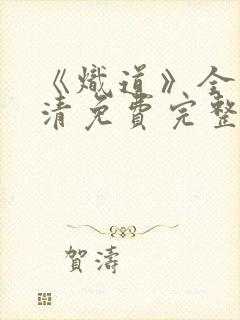 《熾道》全
清免費完整
賀濤